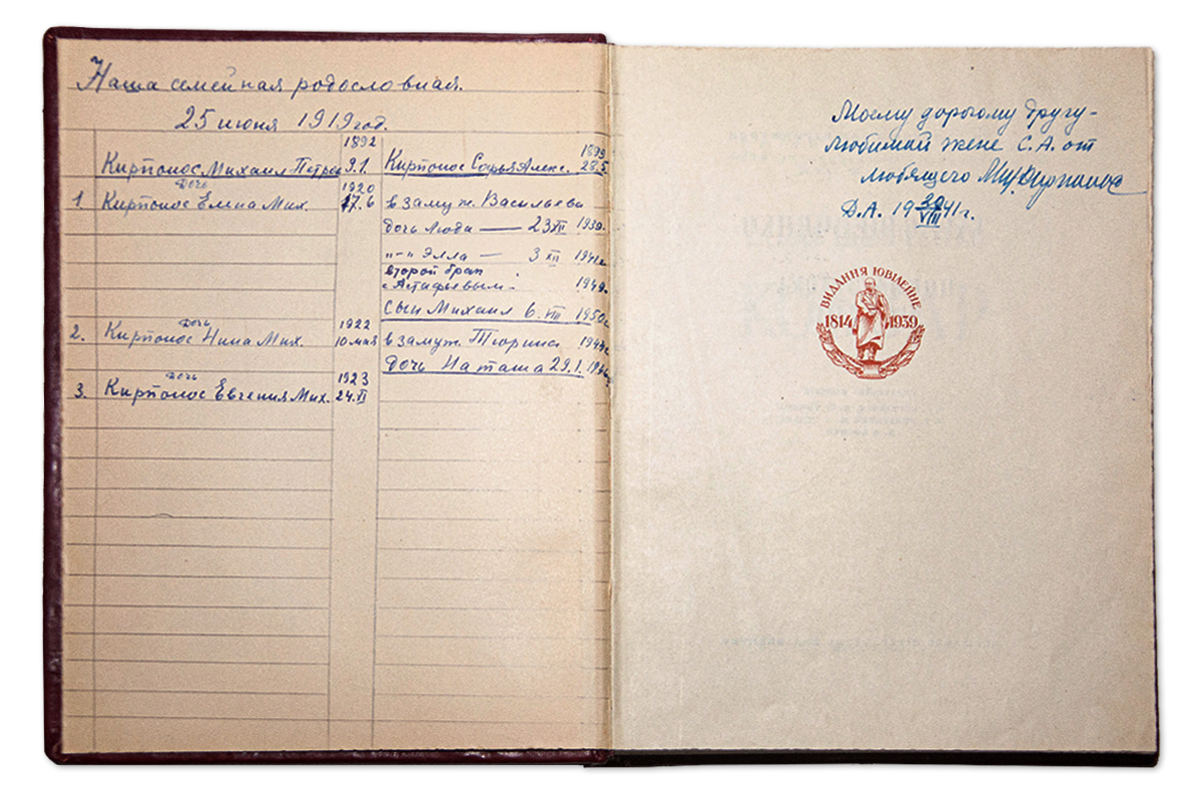 Наша семейная родословная.
25 июня 1919 год.
1892
Кирпонос Михаил Петров 9.1.
1899
Кирпонос Софья Алекс. 28.5.
Дочь 1920
1. Кирпонос Елена Мих. 17.6
в замуж. Васильева
дочь Люда — 23 XII 1939г.
"-" Элла — 3 XII 1941г.
второй брак
с Астафьевым - 1949г.
Сын Михаил 6. VIII 1950г.
Дочь 1922
2. Кирпонос Нина Мих. 10 мая
в замуж. Тюрина
Дочь Наташа 29.1.
Дочь 1923
3. Кирпонос Евгения Мих. 24.VI
Моему дорогому другу-
любимой жене С.А. от
любящего
Д.А. 19 30/VIII 41 г.
ВИДАННЯ ЮВІЛЕЙНЕ
1814 1939